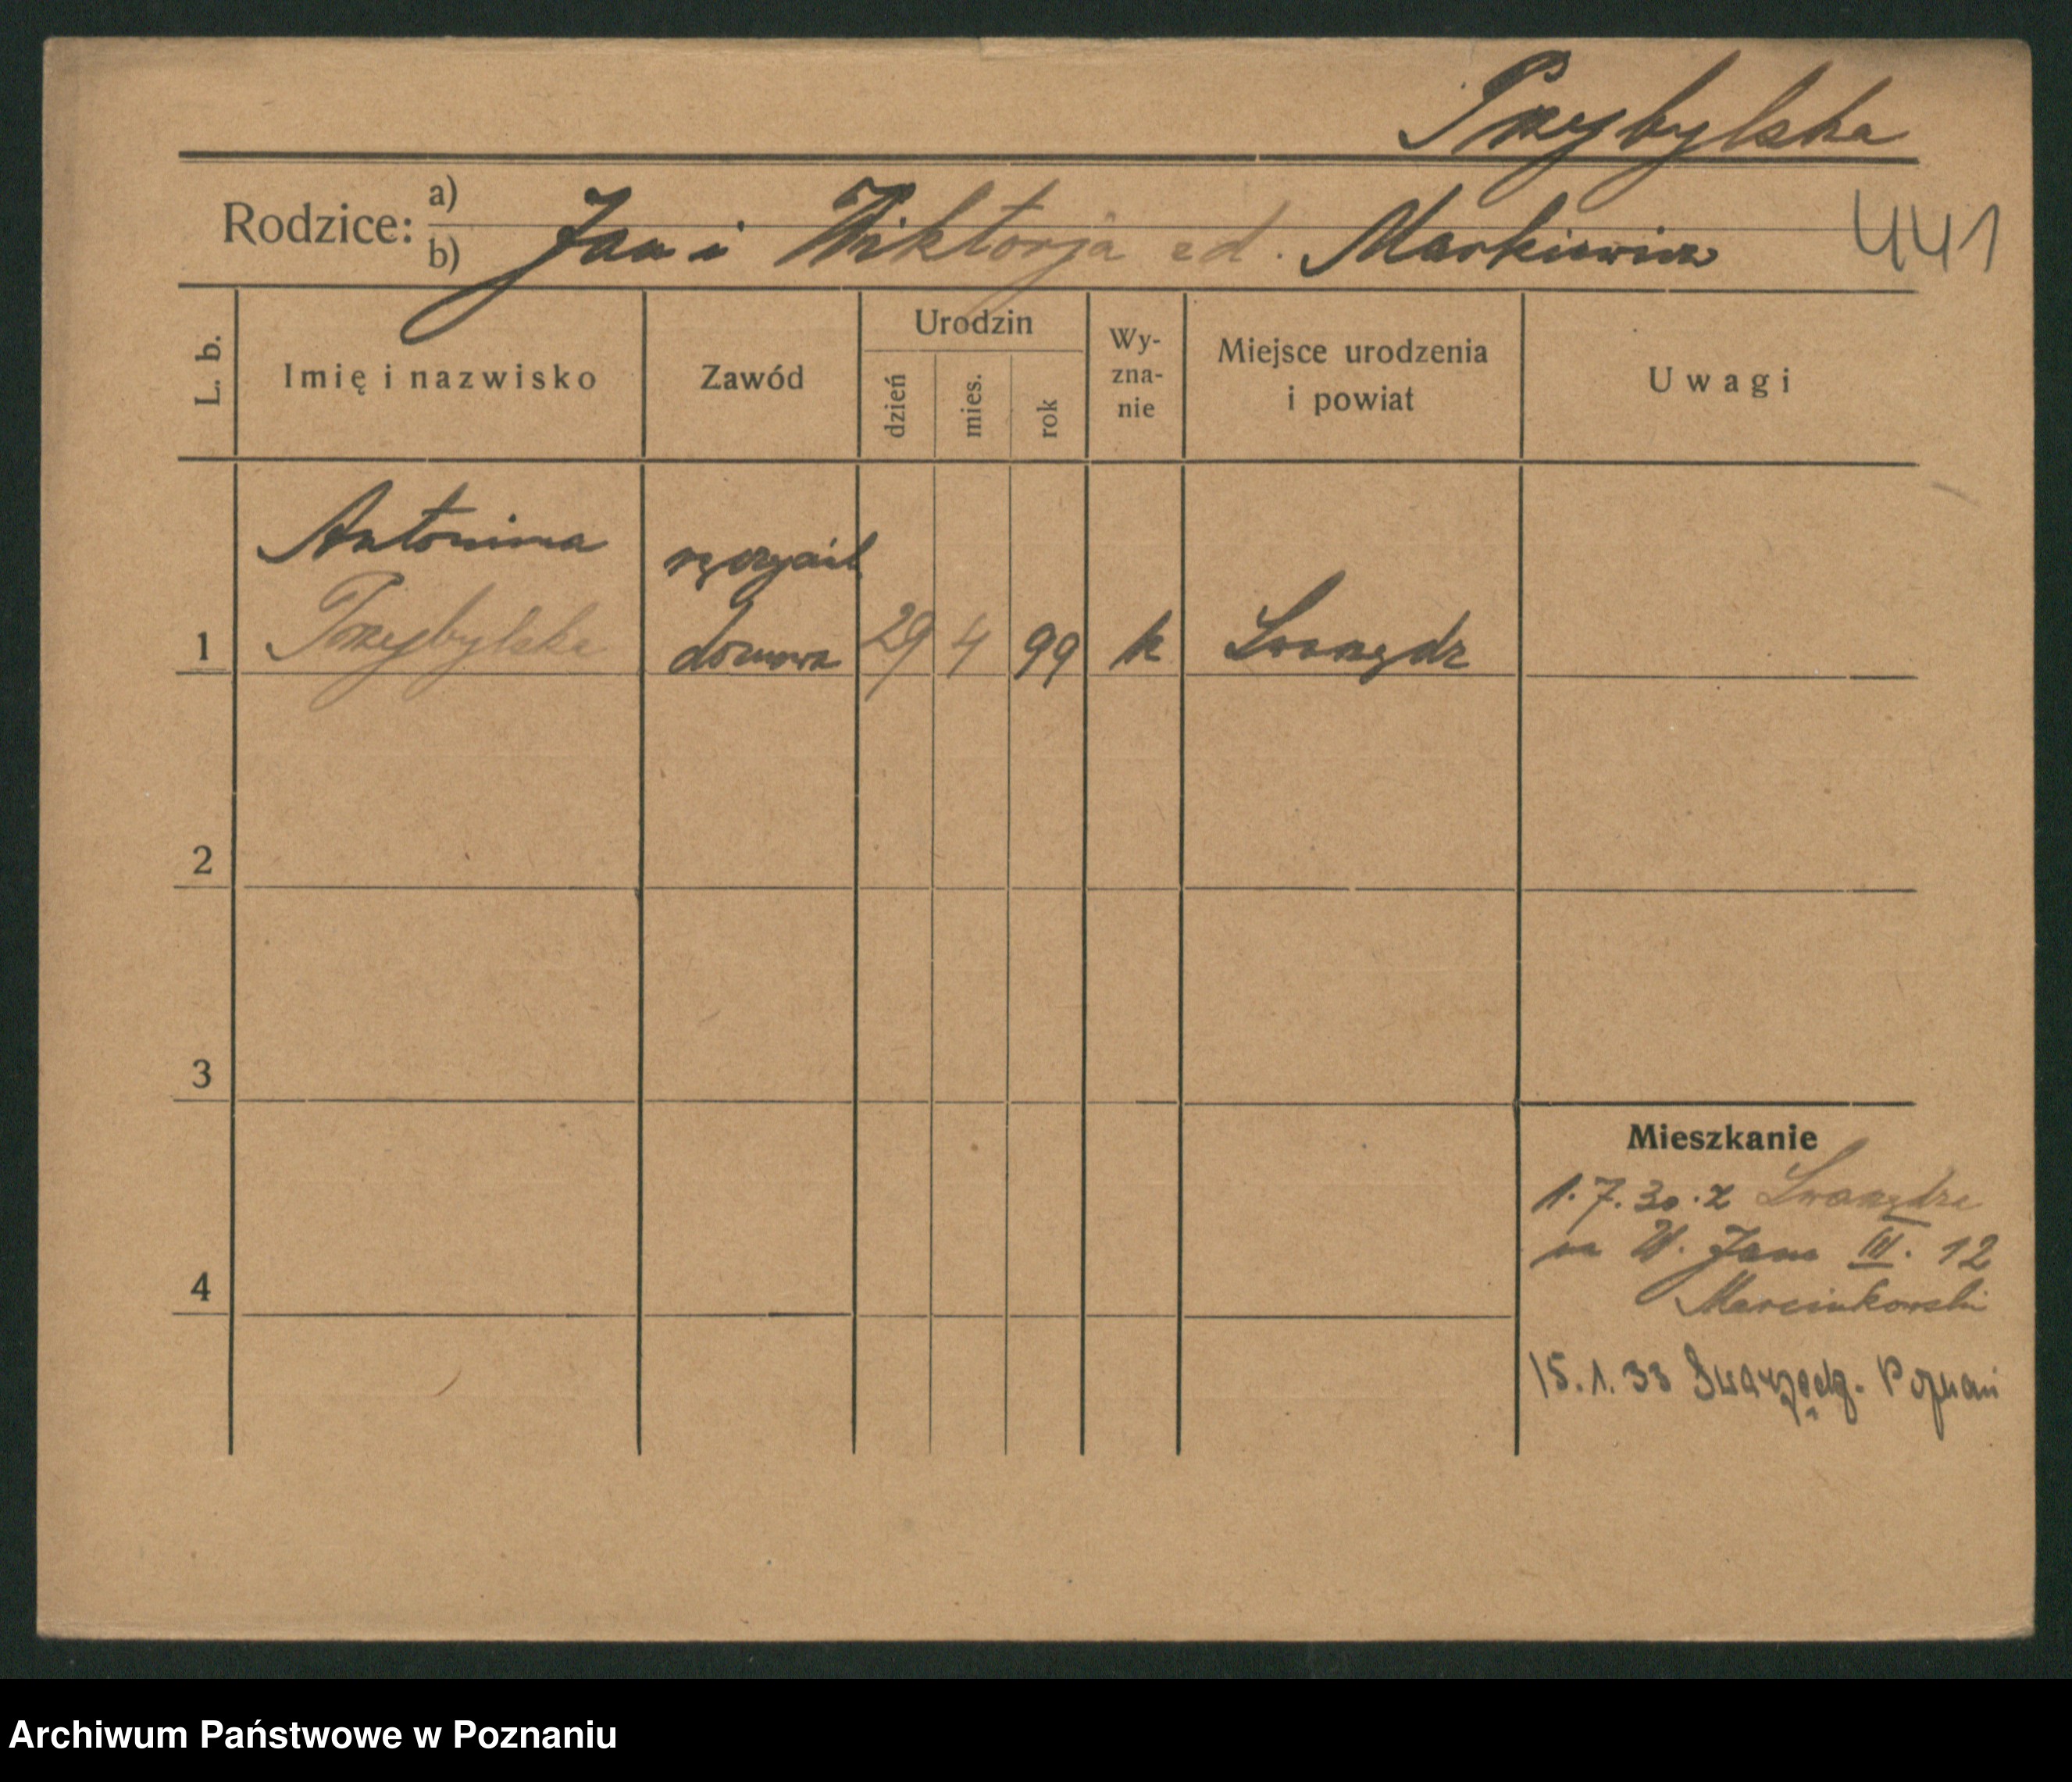 Przybylska
Rodzice: a)
b) Jan i Wiktorja zd. Markiewicz
441
L. b.
Imię i nazwisko
Zawód
Urodzin
dzień
mies.
rok
Wy-
zna-
nie
Miejsce urodzenia
i powiat
Uwagi
Antonina
Przybylska
domowa
1
29 4 99 k Swarzędz
2
3
4
Mieszkanie
1.7.30. z Swarzędza
na W. Jana III. 12
Marcinkowski
15.1.33 Swarzędz - Poznań
Archiwum Państwowe w Poznaniu